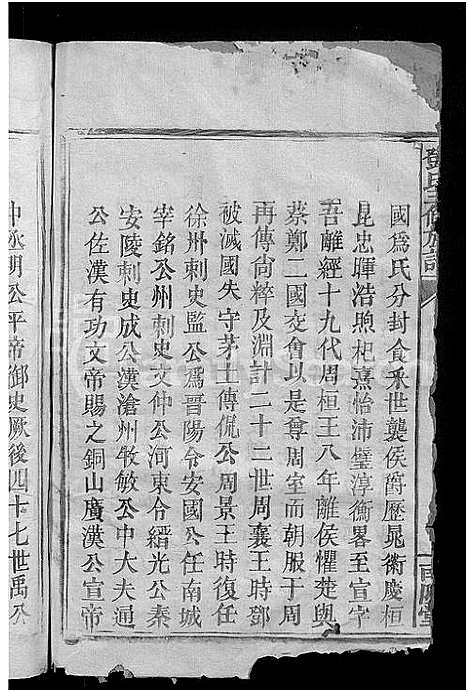 鄧氏三修族譜
國爲氏分封食釆世襲侯爵歷晁衛慶桓
昆忠暉浩煦杞熹怡沛璧淳衡畧至宣字
吾離經十九代周桓王八年離侯懼楚與
蔡鄭二國交會以是尊周室而朝服于
再傳尙粹及淵計二十二世周襄王時鄧
被滅國失守茅土傳侃公周景王時復任
徐州刺史監公爲晋陽令安國公任南城
宰銘公州刺史文仲公河東令縉光公秦
安陵刺史成公漢滄州牧敏公中大夫通
公佐漢有功文帝賜之銅山廣漢公宣帝
中丞明公平帝御史厥後四十七世禹公
南陽堂